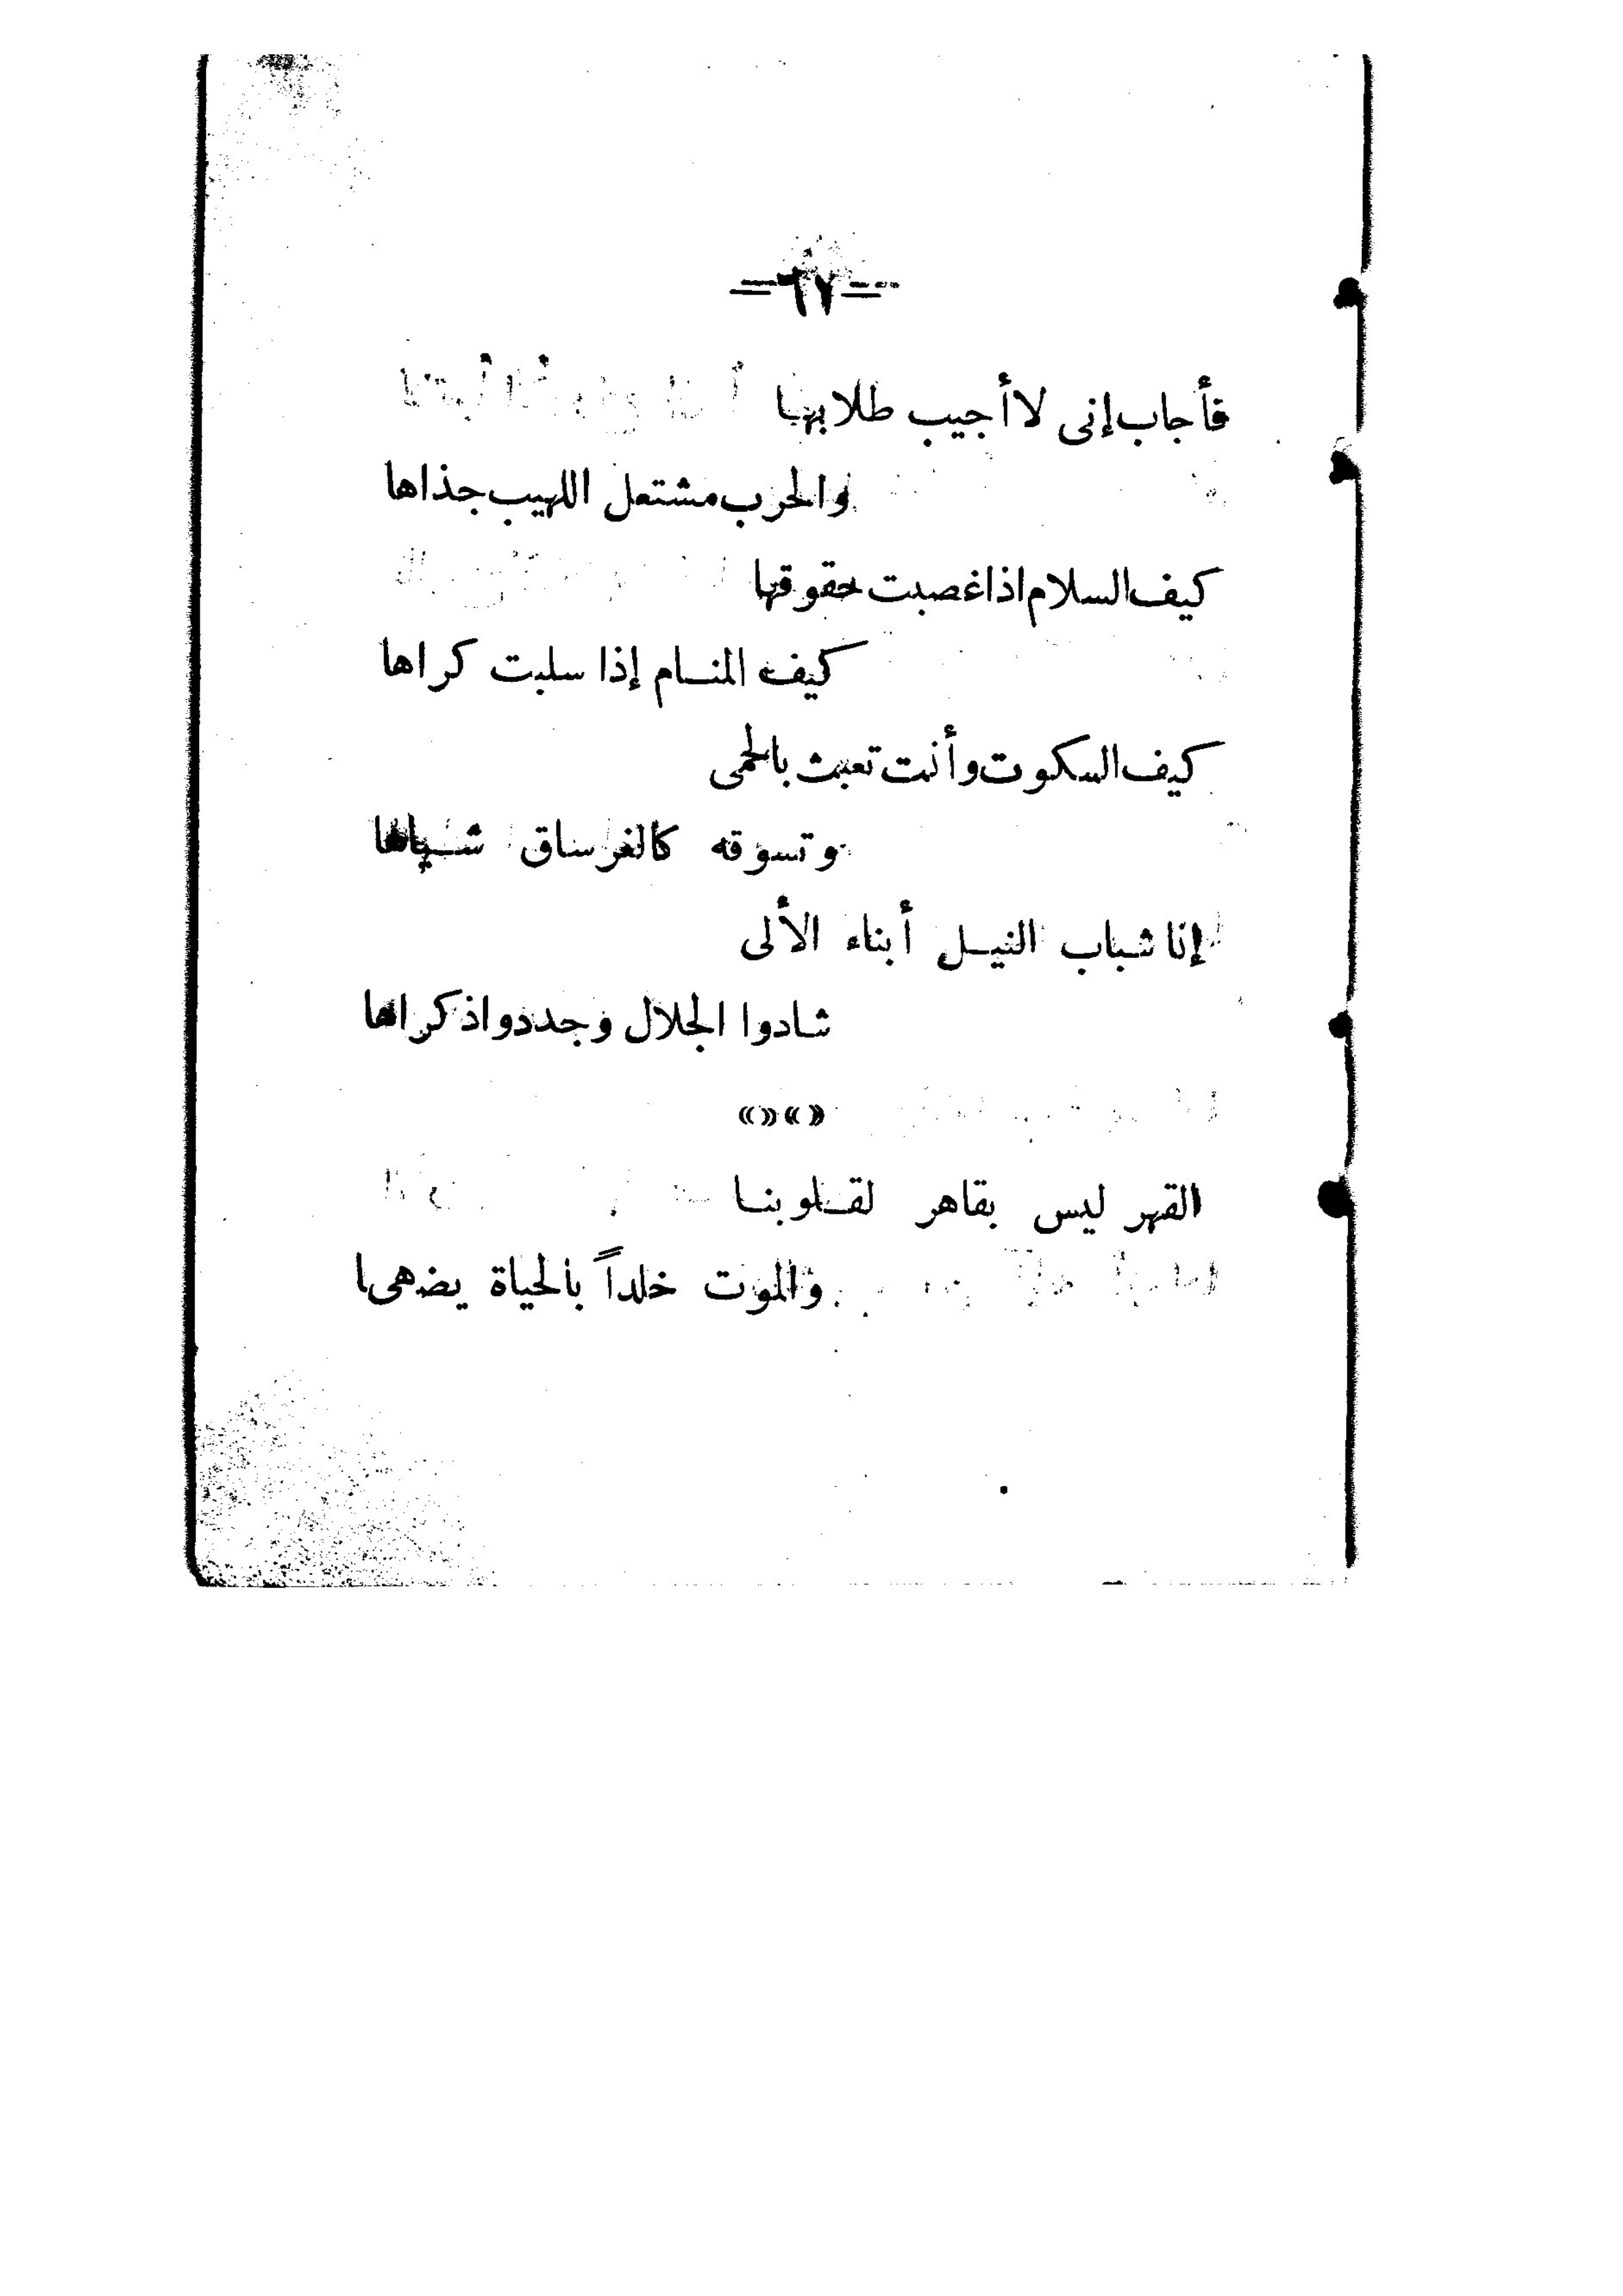 =٦٧=
فأجاب إنى لا أجيب طلابها
والحرب مشتعل اللهيب جذاها
كيف السلام اذا غصبت حقوقها
كيف المنـام إذا سلبت كراها
كيف السكوت وأنت تعبث بالحمى
وتسوقه كالغر ساق شـياها
إنا شباب النيـل أبناء الألى
شادوا الجلال وجددوا ذكراها
«»«»
القهر ليس بقاهر لقـلوبنـا
والموت خلداً بالحياة يضهى